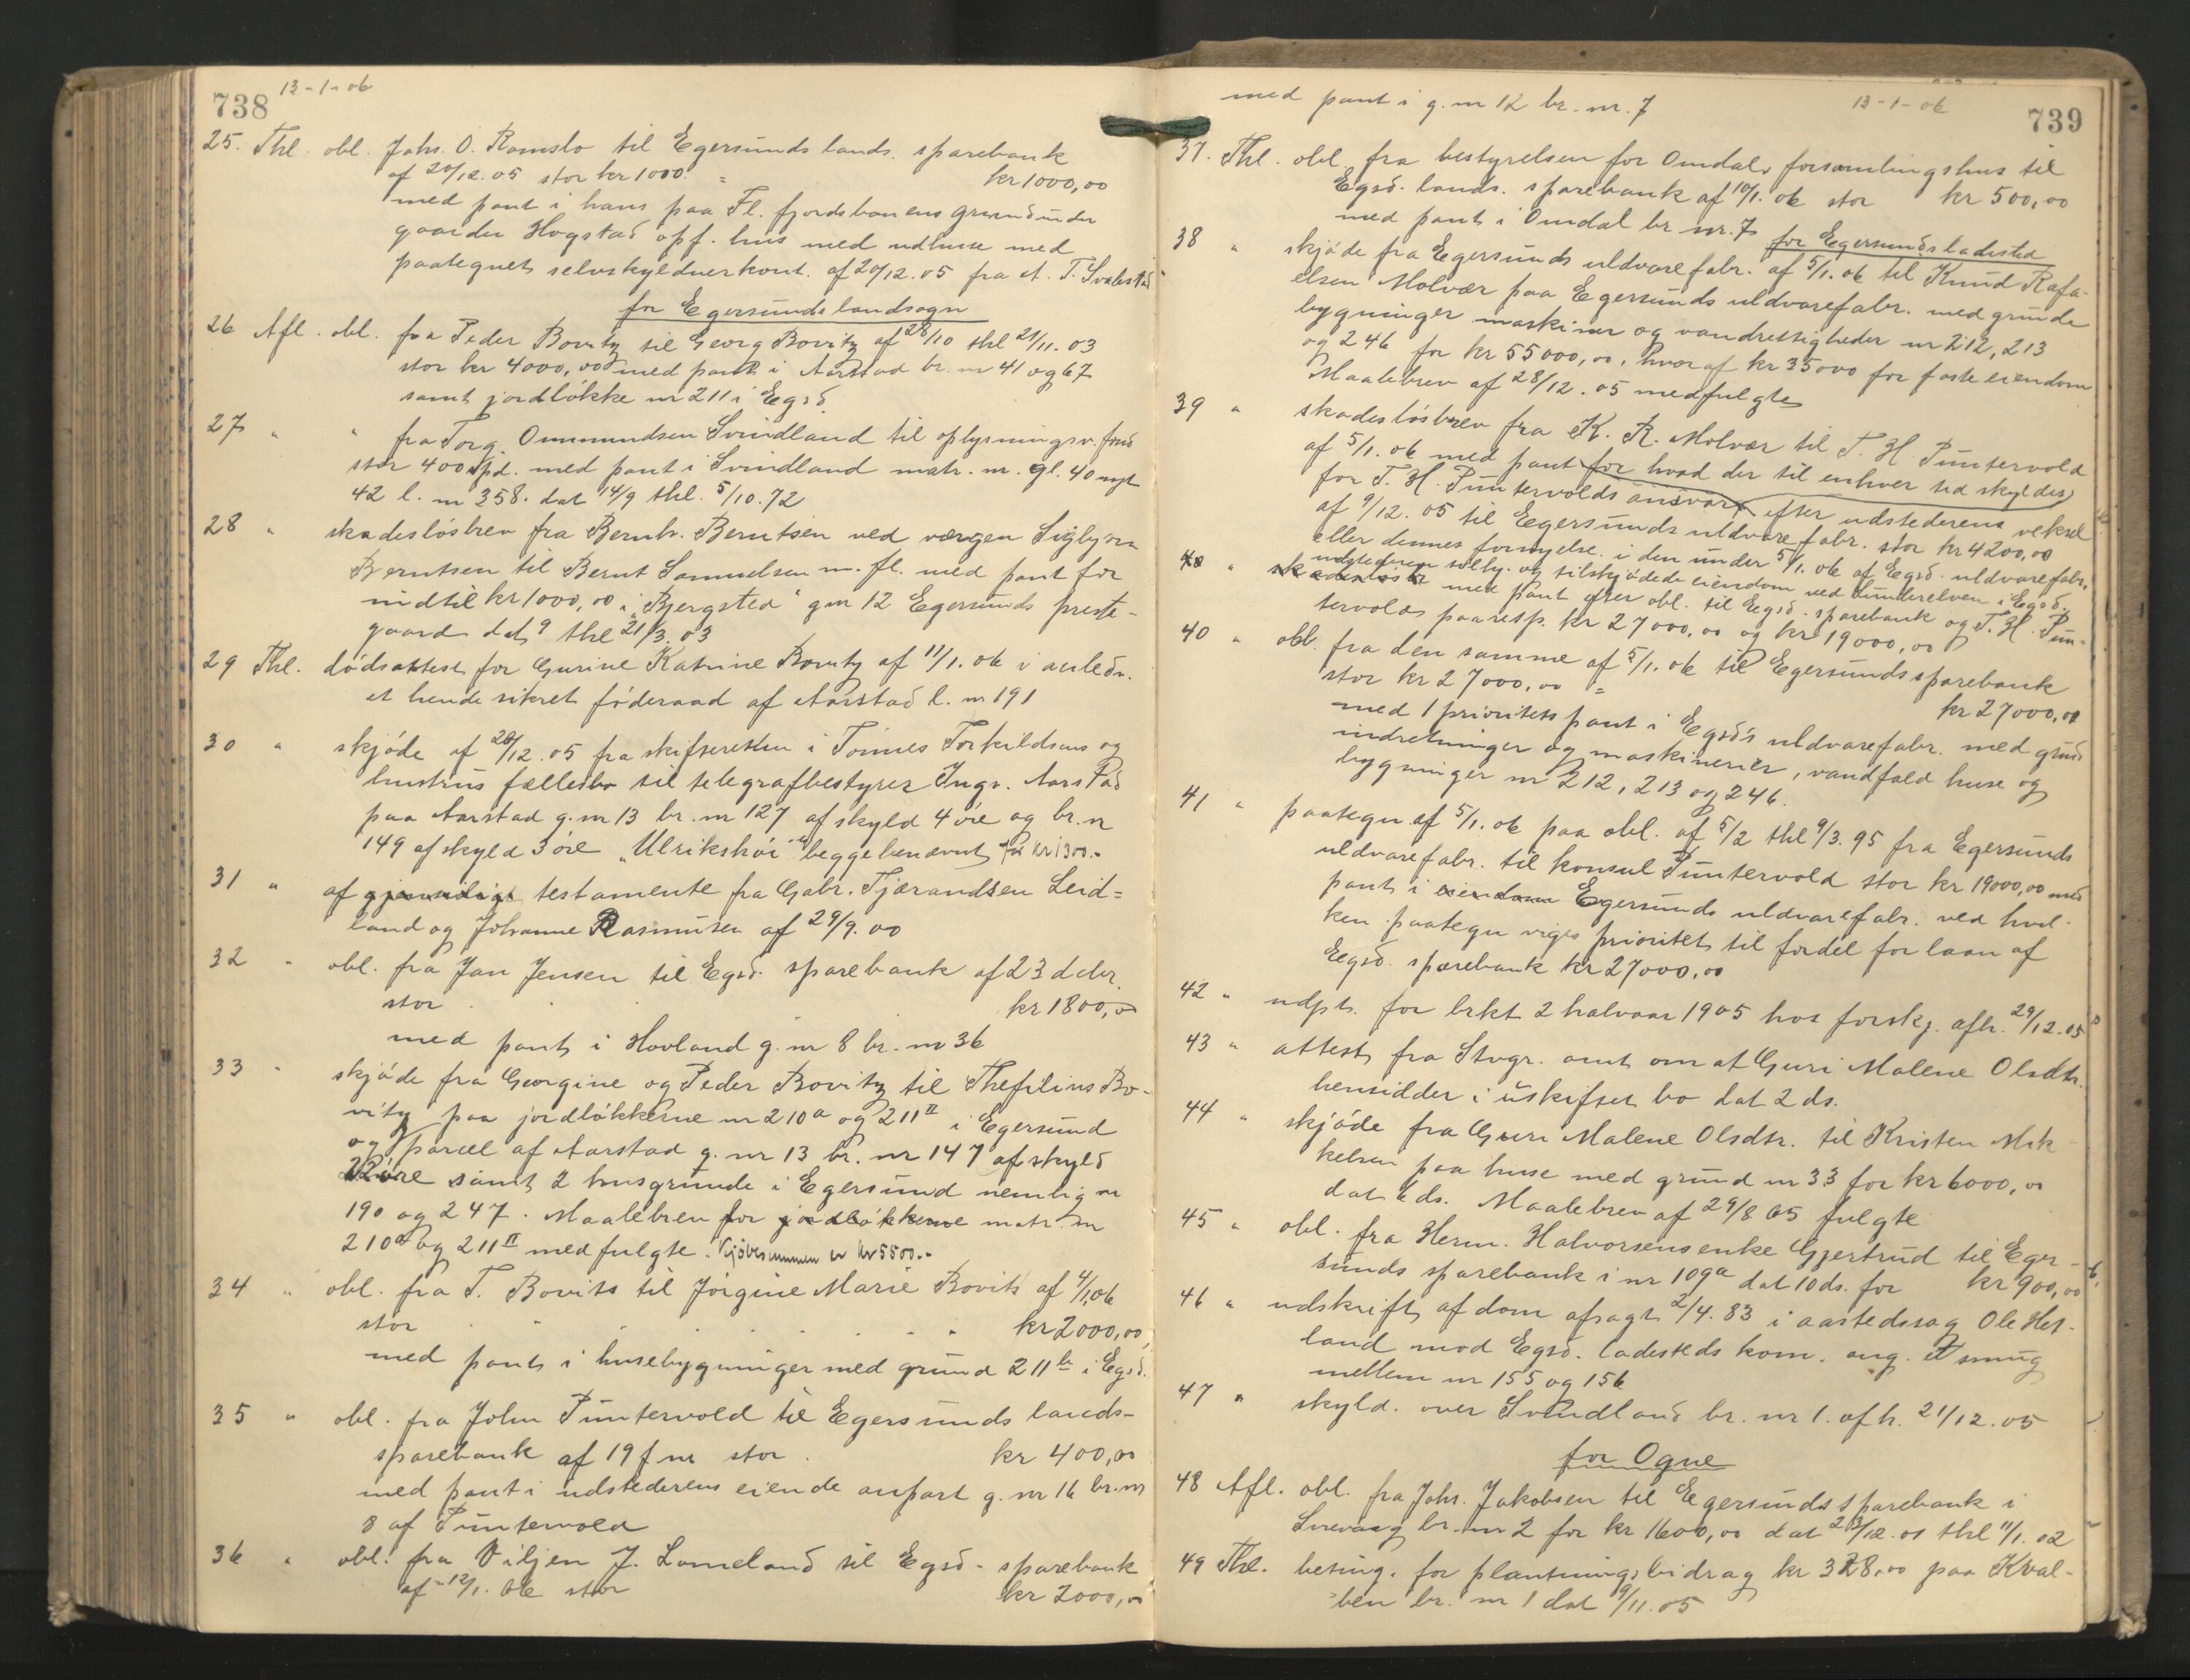 738 13-1-06
25. Thl. obl. Johs. O. Ramslo til Egersunds lands. sparebank
af 20/12.05 stor kr 1000. = kr 1000,00
med pant i hans paa Fl. fjordsbanens grund under
gaarden Hogstad opf. hus med udhuse med
paategnet selvskyldnerkont. af 20/12.05 fra A. T. Svalestad
for Egersunds landsogn
26 Afl. obl. fra Peder Bovitz til Georg Bovitz af 28/10 thl 21/11.03
stor kr 4000,00 med pant i Aarstad br. nr 41 og 67
samt jordløkke nr 211 i Egsd.
27 " " fra Torg. Ommundsen Svindland til oplysningsv. fond
stor 400 spd. med pant i Svindland matr. nr. gl. 40 nyt
42 l. nr 358. dat 14/9 thl. 5/10.72
28 " skadesløsbrev fra Bernh. Berntsen ved værgen Sigbjørn
Berntsen til Bernt Samuelsen m. fl. med pant for
indtil kr 1000,00 i "Bjergsted" gnr 12 Egersunds preste-
gaard dat 9 thl 21/3.03
29 Thl. dødsattest for Gurine Katrine Bovitz af 11/1.06 i anledn.
et hende sikret føderaad af Aarstad l. nr 191
30 " skjøde af 20/12.05 fra skifteretten i Tønnes Torkildsens og
hustrus fællesbo til telegrafbestyrer Ingv. Aarstad
paa Aarstad g. nr 13 br. nr 127 af skyld 4 øre og br. nr
149 af skyld 3 øre "Ulrikshøi" begge benævnt for kr 1300.-
31 " af gjensidigt testamente fra Gabr. Tjærandsen Leid=
land og Johanne Rasmusen af 29/9.00
32 " obl. fra Jan Jensen til Egsd. sparebank af 23 dcbr.
stor . . kr 1800,00
med pant i Hovland g. nr 8 br. nr 36
33 " skjøde fra Georgine og Peder Bovitz til Thefilius Bo-
vitz paa jordløkkerne nr 210a og 211 II i Egersund
og parcel af Aarstad g. nr 13 br. nr 147 af skyld
22 øre samt 2 husgrunde i Egersund nemlig nr
190 og 247. Maalebrev for jordløkkerne matr. nr
210a og 211 II medfulgte. Kjøbesummen er kr 5500.-
34 " obl. fra T. Bovitz til Jørgine Marie Bovitz af 4/1.06
stor . . . . . . . kr 2000,00
med pant i husebygninger med grund 211 b i Egsd.
35 " obl. fra John Puntervold til Egersunds lands-
sparebank af 19 f m stor . kr 400,00
med pant i udstederens eiende anpart g. nr 16 br. nr
8 af Puntervold
36 " obl. fra Viljen J. Lomeland til Egsd. sparebank
af 12/1.06 stor kr 2000,00
13-1-06 739
med pant i g. nr 12 br. nr. 7
37. Thl. obl. fra bestyrelsen for Omdals forsamlingshus til
Egsd. lands. sparebank af 10/1.06 stor kr 500,00
med pant i Omdal br. nr. 7
for Egersunds ladested
38 " skjøde fra Egersunds uldvarefabr. af 5/1.06 til Knud Rafa-
elsen Molvær paa Egersunds uldvarefabr. med grunde
bygninger maskiner og vandrettigheder nr 212, 213
og 246 for kr 55000,00, hvoraf kr 35000 for faste eiendom
Maalebrev af 28/12.05 medfulgte
39 " skadesløsbrev fra K. R. Molvær til T. H. Puntervold
af 5/1.06 med pant for hvad der til enhver tid skyldes
for T. H. Puntervolds ansvar efter udstederens veksel
af 9/12.05 til Egersunds uldvarefabr. stor kr 4200,00
eller dennes fornyelse. i den under 5/1.06 af Egsd. uldvarefabr.
udstederen solby. og tilskjødede eiendom ved Lunderelven i Egsd.
40 " skadesløsbr med pant efter obl. til Egsd. sparebank og T. H. Pun-
tervolds paa resp. kr 27000,00 og kr 19000,00
40 " obl. fra den samme af 5/1.06 til Egersunds sparebank
stor kr 27000,00 = kr 27000,00
med 1 prioritets pant i Egsd's uldvarefabr. med grund
indretninger og maskinerier, vandfald huse og
bygninger nr 212, 213 og 246.
41 " paategn af 5/1.06 paa obl. af 5/2 thl 9/3.95 fra Egersunds
uldvarefabr. til konsul Puntervold stor kr 19000,00 med
pant i eiendom Egersunds uldvarefabr. ved hvil-
ken paategn viges prioritet til fordel for laan af
Egsd. sparebank kr 27000,00
42 " udpt. for brkt 2 halvaar 1905 hos forskj. afh. 29/12.05
43 " attest fra Stvgr. amt om at Guri Malene Olsdtr.
hensidder i uskiftet bo dat 2 ds.
44 " skjøde fra Guri Malene Olsdtr. til Kristen Mik
kelsen paa huse med grund nr 33 for kr 6000,00
dat 6 ds. Maalebrev af 29/8 05 fulgte
45 " obl. fra Herm. Halvorsens enke Gjertrud til Eger-
sunds sparebank i nr 109a dat 10 ds. for kr 900,00
46 " udskrift af dom afsagt 2/4.83 i aastedssag Ole Het-
land mod Egsd. ladesteds kom. ang. et smug
mellem nr 155 og 156
47 " skyld. over Svindland br. nr 1. afh. 21/12.05
for Ogne
48 Afl. obl. fra Johs. Jakobsen til Egersunds sparebank i
Sirevaag br. nr 2 for kr 1600,00 dat 23/12.01 thl 11/1.02
49 Thl. beting. for plantningsbidrag kr 328,00 paa Kval-
ben br. nr 1 dat 9/11.05